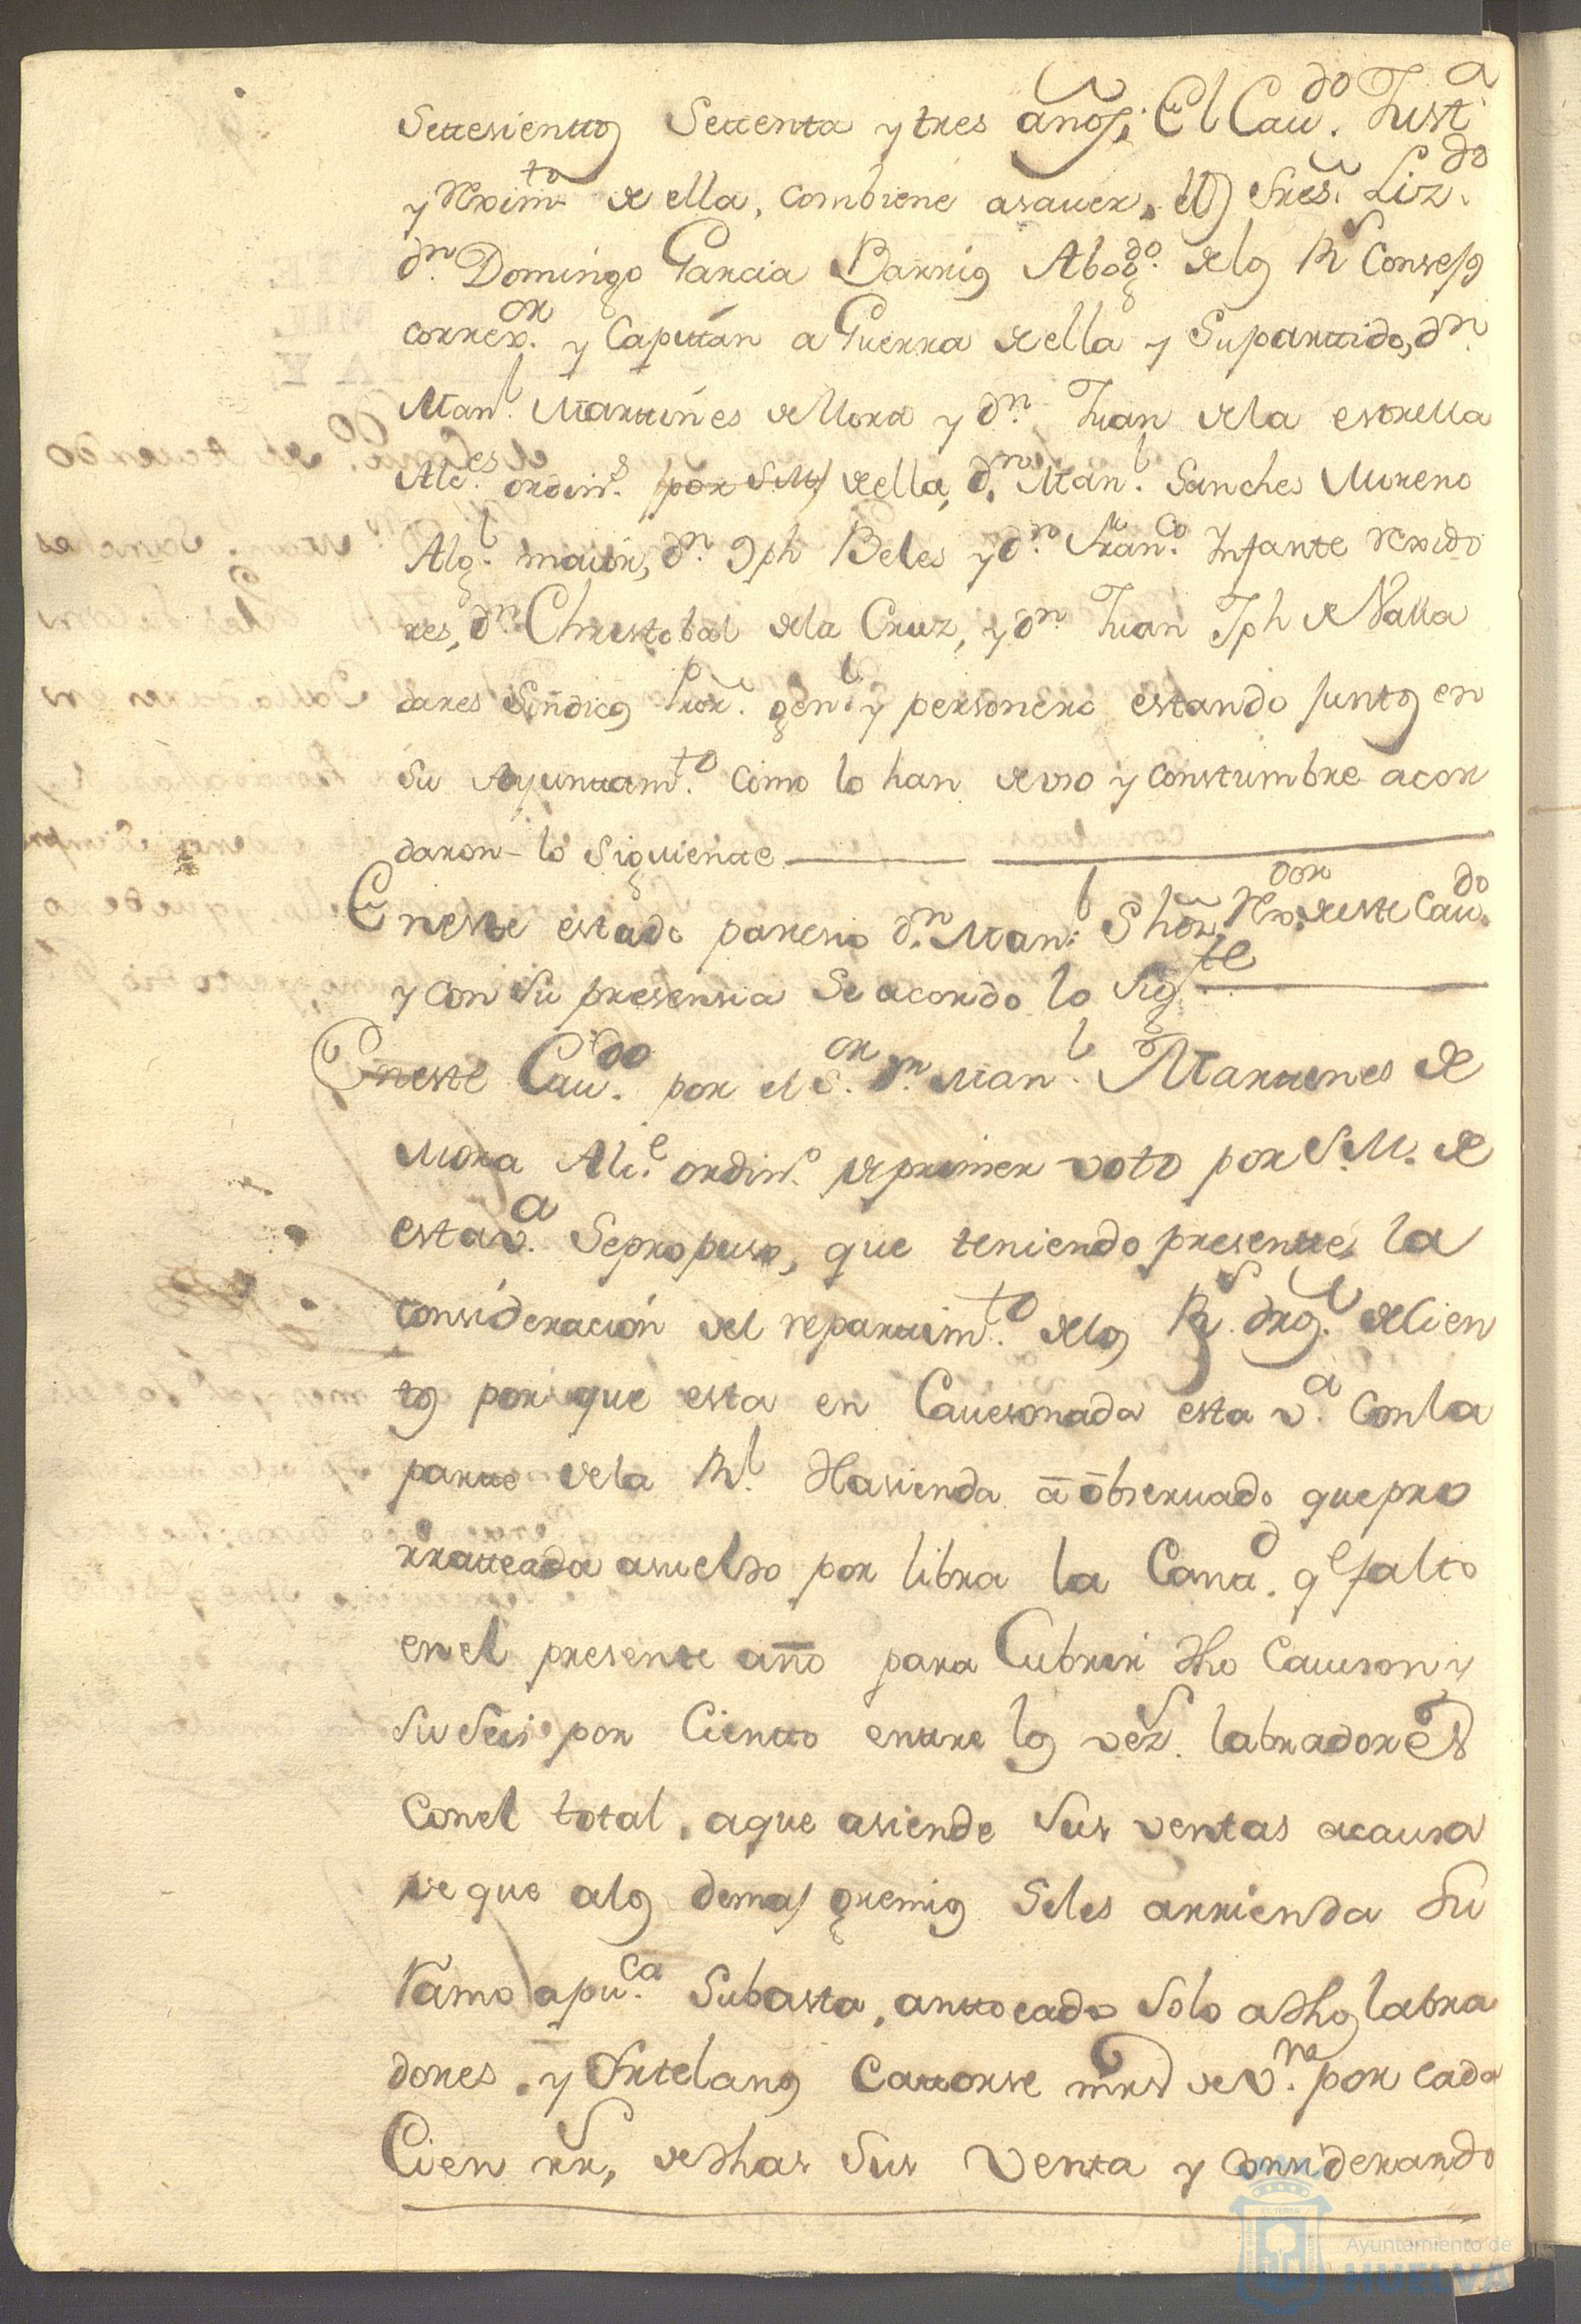 Settesienttos Settenta y tres años; El Cauᵈᵒ. Justᵃ
y Reximᵗᵒ de ella, combiene asauer, los Sres. Lizᵈᵒ.
dⁿ. Domingo Garcia Barrios Abogᵈᵒ. de los Rˢ Consejos
correxᵒʳ. y Capittán a Guerra de ella y su parttido, dⁿ.
Manˡ. Marttines de Mora y dⁿ. Juan de la esttrella
Alcᵉˢ. ordinˢ. por S.M. de ella, dⁿ. Manˡ. Sanches Moreno
Algˡ. maior, dⁿ. Jph Beles y dⁿ. Franᶜᵒ. Infante Rexido
res, dⁿ. Christobal de la Cruz, y dⁿ. Juan Jph de Valla
dares Sindicos Pror. genˡ. y personero estando juntos en
su Ayunttamᵗᵒ. como lo han de uso y constumbre acor
daron lo siguientte
En este estado paresio dⁿ. Manˡ. Shōr. Rexᵈᵒʳ. de este Cauᵈᵒ.
y con su presensia se acordo lo sigᵗᵉ
En este Cauᵈᵒ. por el Sᵒʳ. dⁿ. Manˡ. Marttines de
Mora Alcᵉ. ordinᵒ. de primer voto por S.M. de
esta vᵃ. se propuso, que teniendo presentte, la
consideración del reparttimᵗᵒ. de los Rˢ. drōs. de Cien
tos por que esta en Cauesonada esta vᵃ. con la
partte de la Rˡ. Hasienda ā ōbseruado que pro
rratteada a sueldo por libra la Canttᵈ. qᵉ falto
en el presentte año para Cubrir dho Caueson y
su seis por Cientto enttre los vezˢ. labradores
con el total, a que asiende sus ventas a causa
de que a los demas gremios se les arrienda su
ramo a puᶜᵃ. subasta, an ttocado solo a dhos labra
dores, y Ortelanos Cattorse mrs de vⁿ. por cada
Cien rrˢ, de dhas sus Venta y considerando
Ayuntamiento de
HUELVA